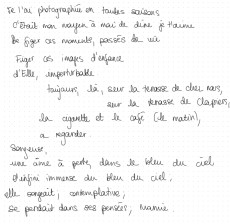 Je l'ai photographiée en toutes saisons
C'était mon moyen à moi de dire je t'aime
De figer ces moments, passés de vie
Figer ces images d'enfance
d'Elle, imperturbable
toujours, là, sur la terrasse de chez nous,
sur la terrasse de Clapiers,
la cigarette et le café (le matin),
a regarder.
Songeuse,
une âme à perte, dans le bleu du ciel
l'infini immense du bleu du ciel,
elle songeait, contemplative,
se perdait dans ses pensées, Mamie.